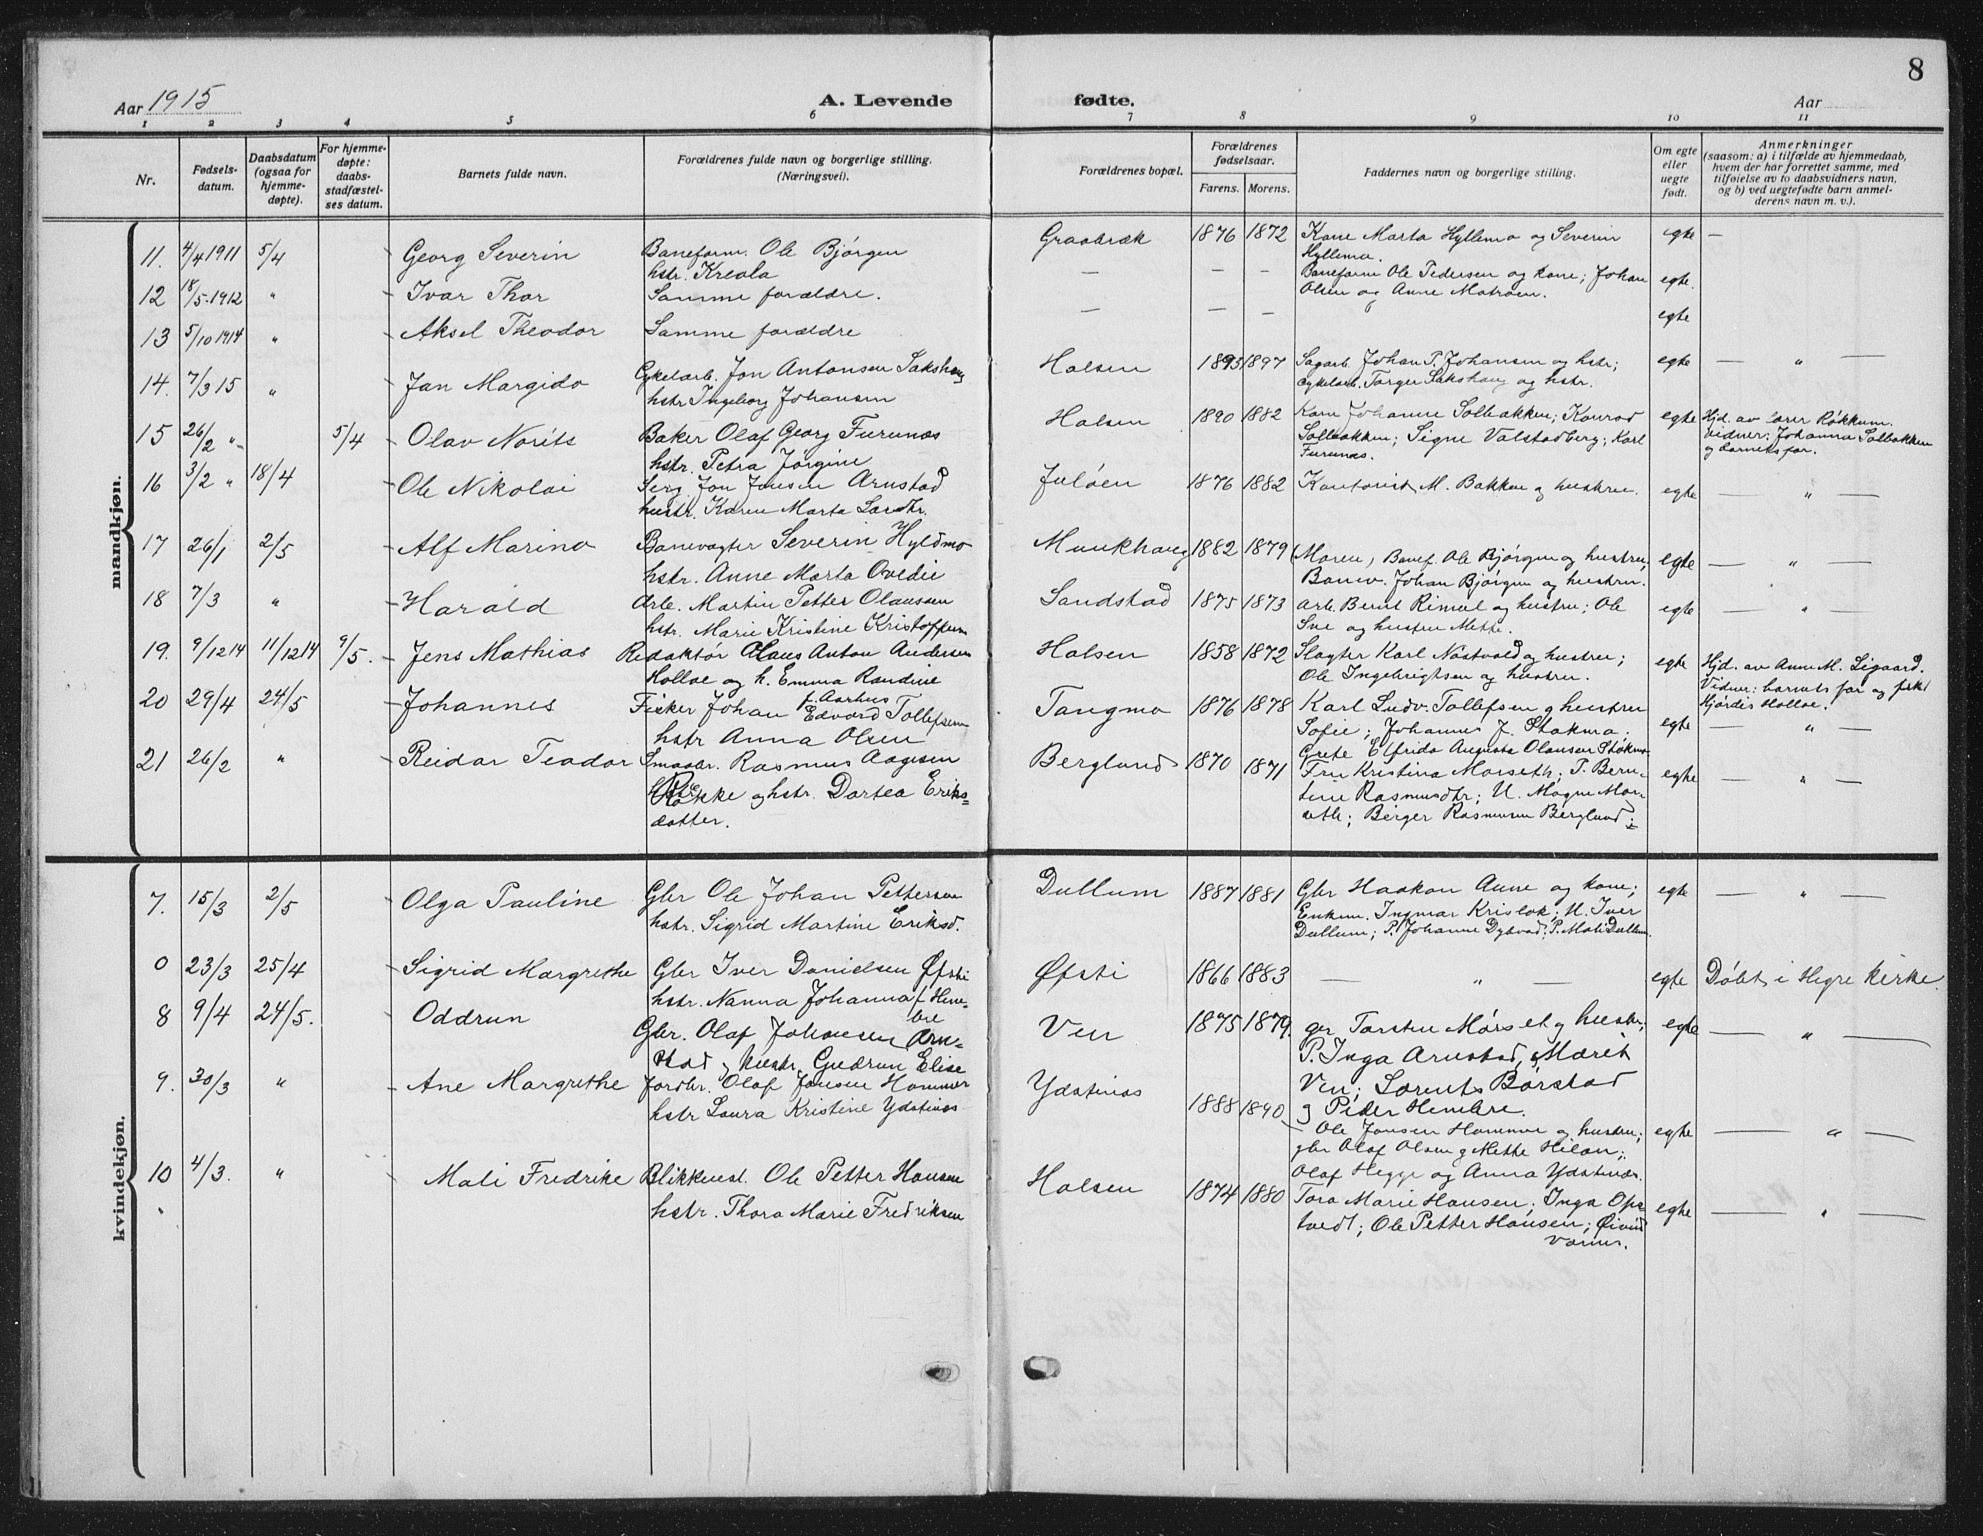 Aar 1915
A. Levende
fødte.
Aar
8
1 2 3 4 5 6 7 8 9 10 11
Nr.
Fødsels-
datum.
Daabsdatum
(ogsaa for
hjemme-
døpte).
For hjemme-
døpte:
daabs-
stadfæstel-
ses datum.
Barnets fulde navn.
Forældrenes fulde navn og borgerlige stilling.
(Næringsvei).
Forældrenes bopæl.
Forældrenes
fødselsaar.
Farens. Morens.
Faddernes navn og borgerlige stilling.
Om egte
eller
uegte
født.
Anmerkninger
(saasom: a) i tilfælde av hjemmedaab,
hvem der har forrettet samme, med
tilføielse av to daabsvidners navn,
og b) ved uegtefødte barn anmel-
derens navn m. v.).
mandkjøn.
11. 4/4 1911 5/4 Georg Severin Baneform. Ole Bjørgen
hstr. Kreola
Graabræk 1876 1872 Kone Marta Hyllemo og Severin
Hyllemo.
egte —
12 18/5 1912 " Ivar Thor Samme forældre.
— — — Baneform Ole Pedersen og kone; Johan
Olsen og Anne Motrøen.
egte.
13 5/10 1914 " Aksel Theodor Samme forældre
— — — egte
14. 7/3 15 " Jan Margido Cykelarb. Jon Antonsen Sakshaug
hstr Ingeborg Johansen
Halsen 1895 1897 Sagarb. Johan P. Johansen og hstr;
cykelarb. Torger Sakshaug og hstr.
egte — " —
15 26/2 " 5/4 Olav Norits Baker Olaf Georg Furunes
hstr. Petra Jørgine
Halsen 1890 1882 Kone Johanne Solbakken; Konrad
Solbakken; Signe Valstadberg; Karl
Furunes.
egte Hjd. av lærer Røkkum.
Vidner: Johanna Solbakken
og barnets far.
16 3/2 " 18/4 Ole Nikolai Serg. Jon Jonsen Arnstad
hustr. Karen Marta Larsdtr.
Juløen 1876 1882 Kontorist M. Bakken og hustru.
egte — " —
17 26/1 2/5 Alf Marino Banevogter Severin Hyldmo
hstr. Anne Marta Ovedie
Munkhaug 1882 1879 (Moren, Banef. Ole Bjørgen og hustru;
Banev. Johan Bjørgen og hustru.
egte — " —
18 7/3 " Harald Arb. Martin Petter Olaussen
hstr. Marie Kristine Kristoffersen
Sandstad 1875 1873 Arb. Bernt Rimul og hustru; Ole
Sve og hustru Mette.
egte — " —
19. 9/12 14 11/12 14 9/5. Jens Mathias Redaktør Claus Anton Andersen
Holloe og h. Emma Randine
f. Aarhus
Halsen 1858 1872 Slagter Karl Nostvold og hustru;
Ole Ingebrigtsen og hustru.
egte Hjd. av Anne M. Ligaard.
Vidner: barnets far og frk
Hjørdis Holloe.
20 29/4 24/5 Johannes Fisker Johan Edvard Tollefsen
hstr Anna Olsen
Tangmo 1876 1878 Karl Ludv. Tollefsen og hustru
Sofie; Johannes J. Stokmo.
Grete Elfrida Augusta Olausen Stokmo
egte — " —
21 26/2 " Reidar Teodor Smaabr. Rasmus Aagesen
Røkke og hstr. Dortea Eriks-
datter.
Berglund 1870 1871 Fru Kristina Morseth; P. Bern-
tine Rasmusdtr; U. Magne Mor-
seth; Berger Rasmussen Berglund;
egte — " —
kvindekjøn.
7. 15/3 2/5 Olga Pauline Gbr Ole Johan Pettersen
hstr. Sigrid Martine Eriksd.
Dullum 1887 1881 Gbr Haakon Aune og kone;
Enkem. Ingmar Krislok; U. Iver
Dullum; P. Johanne Dybvad; P. Mali Dullum.
egte — " —
0 23/3 25/4 Sigrid Margrethe Gbr Iver Danielsen Øfsti
hstr. Nanna Johanna f. Hem-
bre
Øfsti 1866 1883 — " —
egte Døbt i Hegre Kirke.
8 9/4 24/5. Oddrun Gbr. Olaf Johansen Arn-
stad og hustr. Gudrun Elise
Ven 1875 1879. gbr Torsten Mørset og hustr;
P. Inga Arnstad, Marit
Ven; Lorents Børstad
og Peder Hembre.
egte — " —
9. 30/3 " Ane Margrethe Jordbr. Olaf Jonsen Hammer
hstr Laura Kristine Ydstines
Ydstines 1888 1890 Ole Jonsen Hammer og hustru;
gbr Olaf Olsen og Mette Hilan;
Olaf Hegge og Anna Ydstines.
egte — " —
10 4/3. " Mali Fredrike Blikkensl. Ole Petter Hansen
hstr. Thora Marie Fredriksen
Halsen 1874 1880 Tora Marie Hansen; Inga Ops-
tvedt; Ole Petter Hansen; Øivind
Varnes.
egte — " —